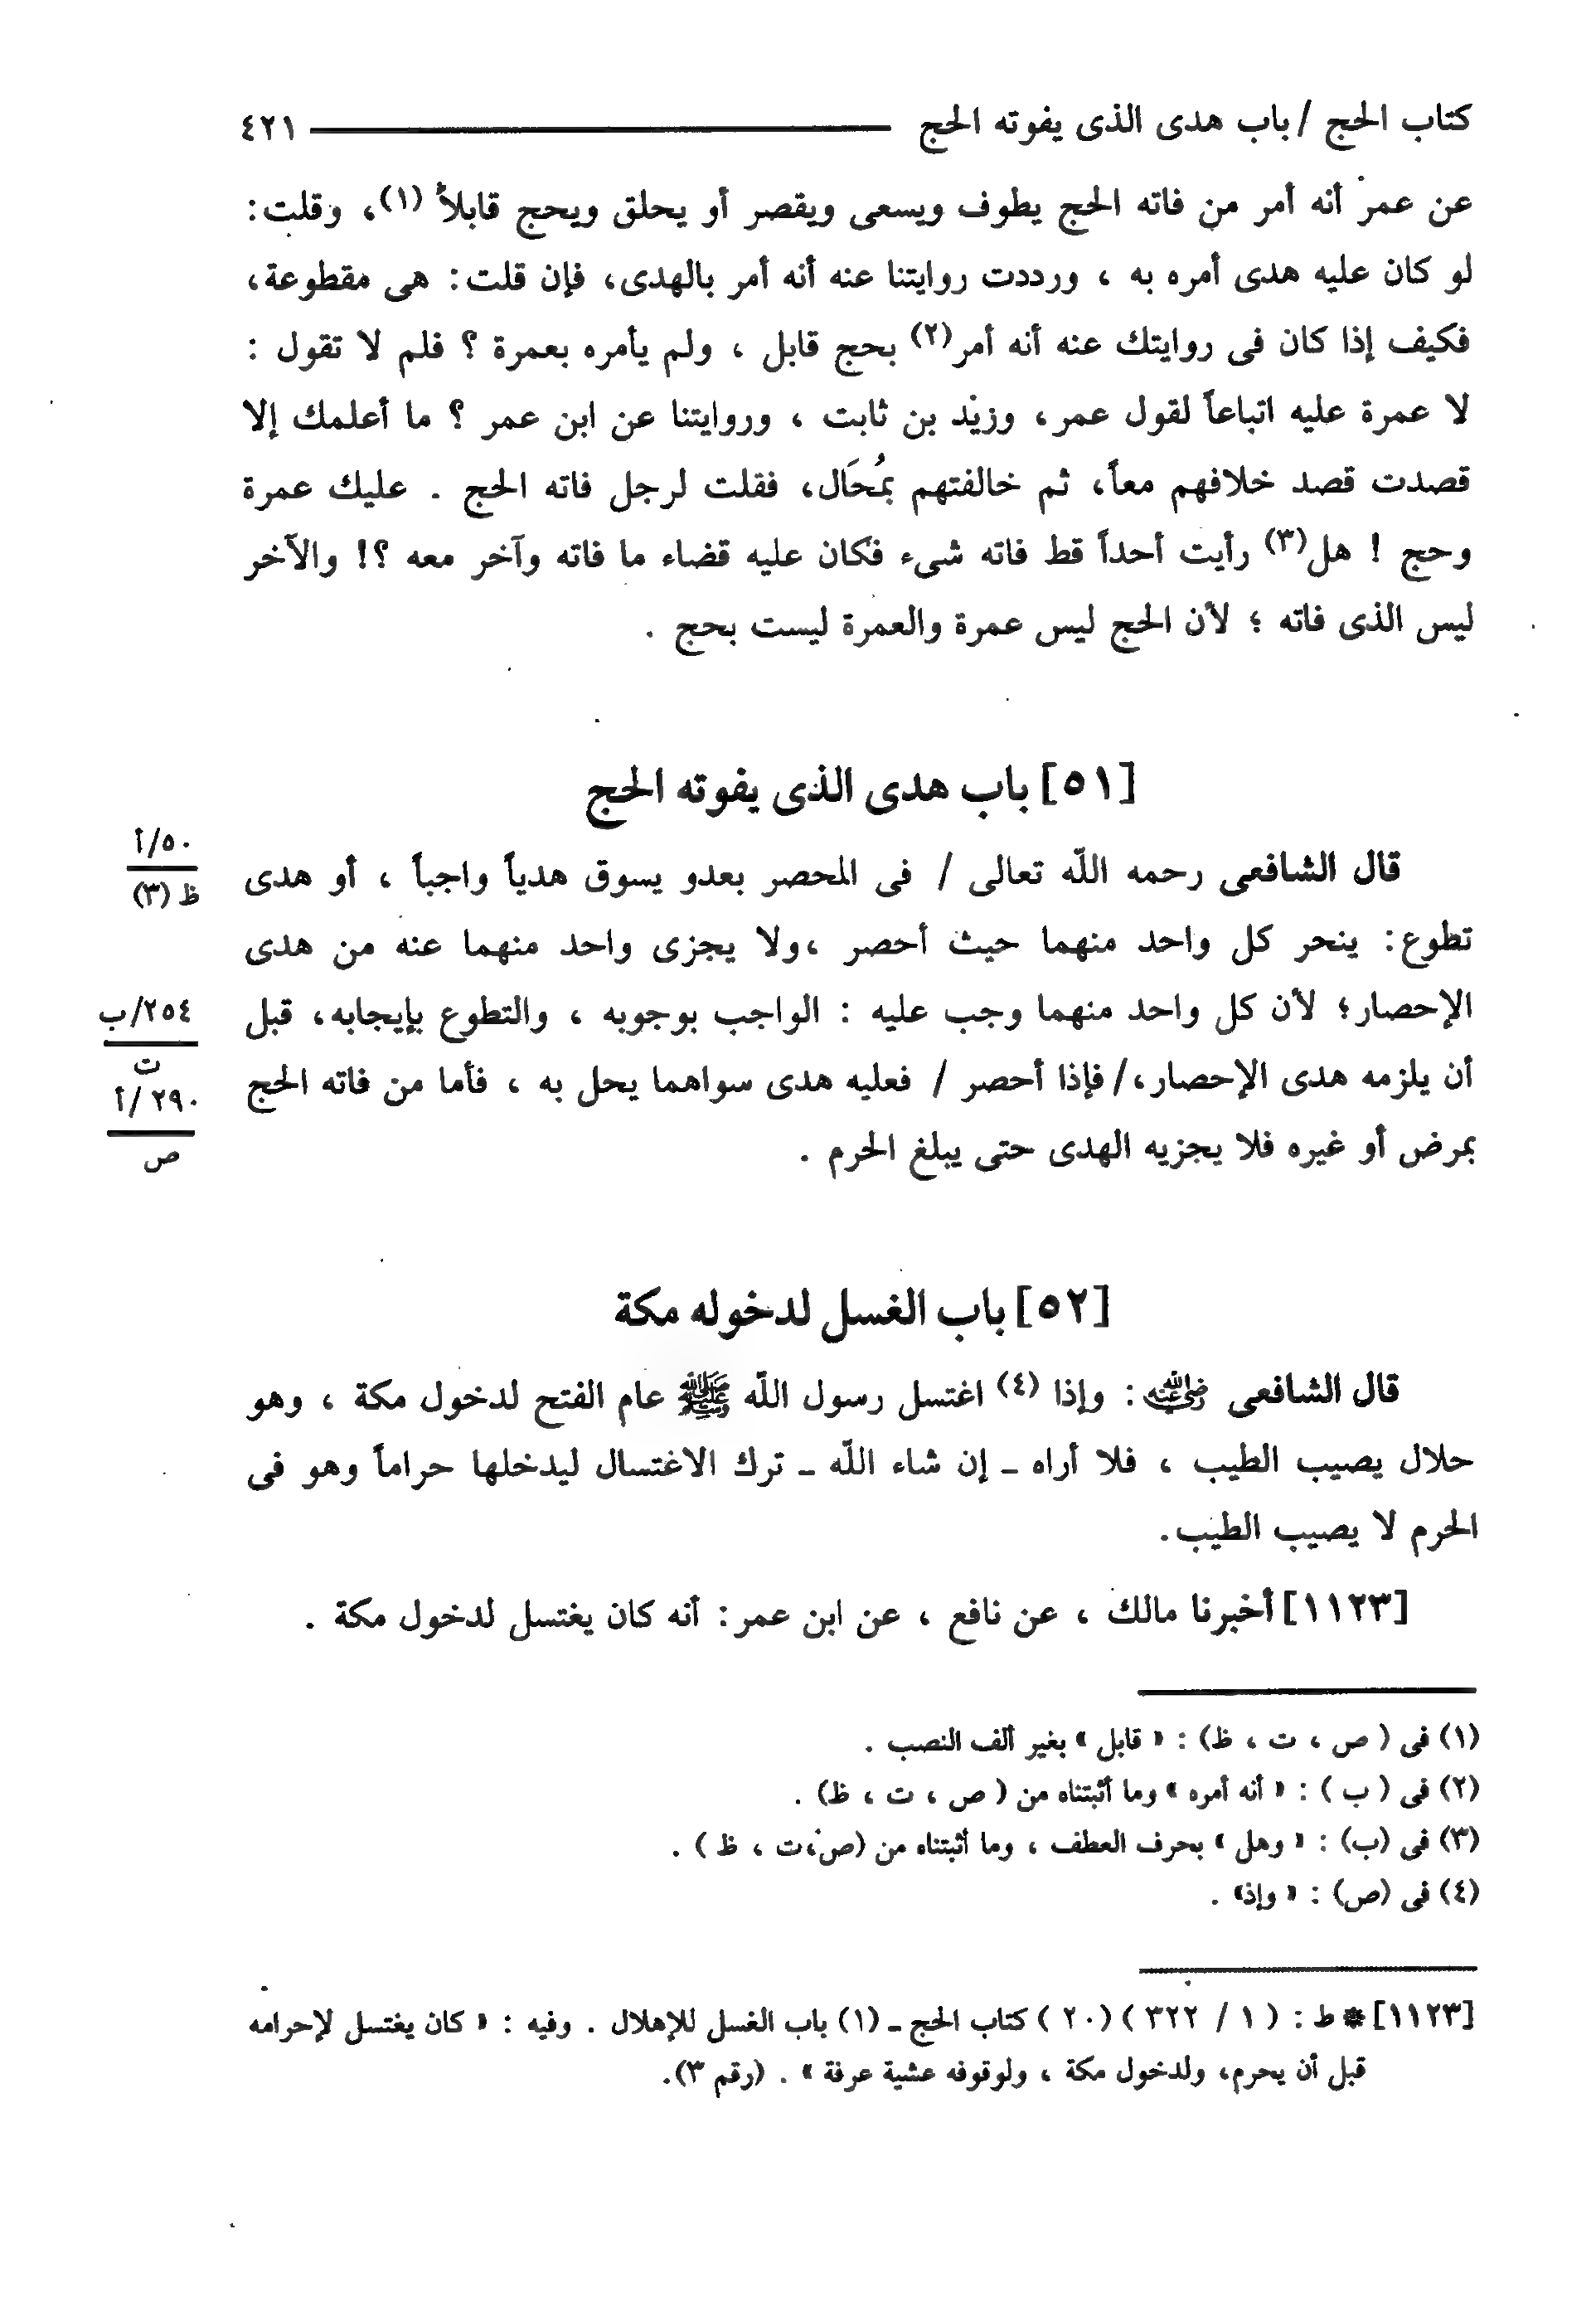 كتاب الحج / باب هدى الذى يفوته الحج ٤٢١
عن عمر أنه أمر من فاته الحج يطوف ويسعى ويقصر أو يحلق ويحج قابلاً (١)، وقلت:
لو كان عليه هدى أمره به ، ورددت روايتنا عنه أنه أمر بالهدى، فإن قلت: هى مقطوعة،
فكيف إذا كان فى روايتك عنه أنه أمر(٢) بحج قابل ، ولم يأمره بعمرة ؟ فلم لا تقول :
لا عمرة عليه اتباعاً لقول عمر، وزيد بن ثابت ، وروايتنا عن ابن عمر ؟ ما أعلمك إلا
قصدت قصد خلافهم معاً، ثم خالفتهم بمُحَال، فقلت لرجل فاته الحج . عليك عمرة
وحج ! هل(٣) رأيت أحداً قط فاته شىء فكان عليه قضاء ما فاته وآخر معه ؟! والآخر
ليس الذى فاته ؛ لأن الحج ليس عمرة والعمرة ليست بحج .
[٥١] باب هدى الذى يفوته الحج
قال الشافعى رحمه اللّه تعالى / فى المحصر بعدو يسوق هدياً واجباً ، أو هدى
٥٠/أ
ظ (٣)
تطوع: ينحر كل واحد منهما حيث أحصر ،ولا يجزى واحد منهما عنه من هدى
الإحصار؛ لأن كل واحد منهما وجب عليه : الواجب بوجوبه ، والتطوع بإيجابه، قبل
٢٥٤/ب
ت
أن يلزمه هدى الإحصار،/ فإذا أحصر / فعليه هدى سواهما يحل به ، فأما من فاته الحج
٢٩٠/أ
ص
بمرض أو غيره فلا يجزيه الهدى حتى يبلغ الحرم .
[٥٢] باب الغسل لدخوله مكة
قال الشافعى رضي الله عنه : وإذا (٤) اغتسل رسول اللّه ﷺ عام الفتح لدخول مكة ، وهو
حلال يصيب الطيب ، فلا أراه ـ إن شاء اللّه ـ ترك الاغتسال ليدخلها حراماً وهو فى
الحرم لا يصيب الطيب.
[١١٢٣] أخبرنا مالك ، عن نافع ، عن ابن عمر: أنه كان يغتسل لدخول مكة .
(١) فى ( ص ، ت ، ظ) : « قابل » بغير ألف النصب .
(٢) فى ( ب ) : « أنه أمره » وما أثبتناه من ( ص ، ت ، ظ) .
(٣) فى (ب) : « وهل » بحرف العطف ، وما أثبتناه من (ص،ت ، ظ ) .
(٤) فى (ص) : « وإذ» .
[١١٢٣] * ط : ( ١ / ٣٢٢ ) ( ٢٠ ) كتاب الحج ـ (١) باب الغسل للإهلال . وفيه : « كان يغتسل لإحرامه
قبل أن يحرم، ولدخول مكة ، ولوقوفه عشية عرفة » . (رقم ٣).